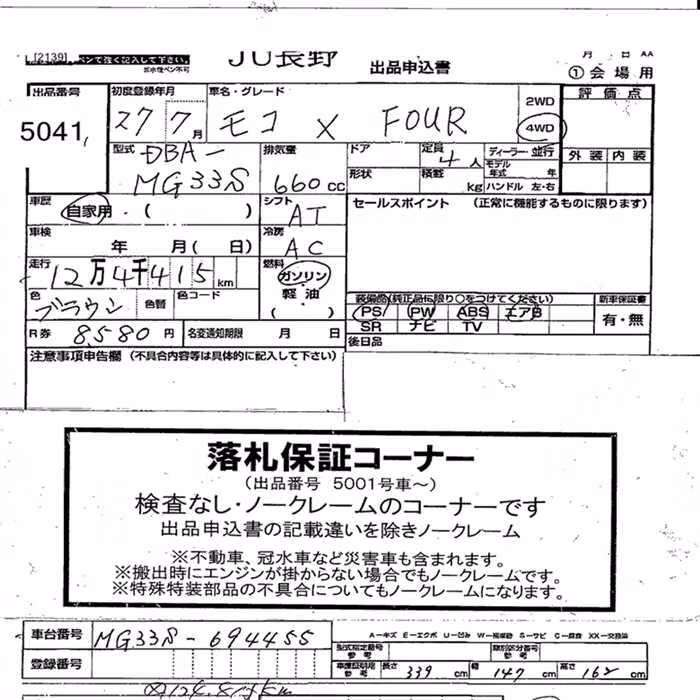 [2139] ペンで強く記入して下さい。
JU長野
出品申込書
月 日 AA
①会場用
出品番号
5041
初度登録年月
27 7月
車名・グレード
モコ X FOUR
2WD
4WD
評価点
外装 内装
型式
DBA-
MG33S
排気量
660cc
ドア
形状
定員
4人
積載
kg
ディーラー・並行
モデル年式 年
ハンドル 左・右
車歴
自家用・( )
シフト
AT
セールスポイント (正常に機能するものに限ります)
車検
年 月( 日)
冷房
AC
走行
12万4千415km
燃料
ガソリン
軽油
( )
色
ブラウン
色替
色コード
装備品(純正品に限り○をつけてください)
PS PW ABS エアB
SR ナビ TV
新車保証書
有・無
R券 8,580円
名変通知期限 月 日
後日品
注意事項申告欄 (不具合内容等は具体的に記入して下さい)
落札保証コーナー
(出品番号 5001号車~)
検査なし・ノークレームのコーナーです
出品申込書の記載違いを除きノークレーム
※不動車、冠水車など災害車も含まれます。
※搬出時にエンジンが掛からない場合でもノークレームです。
※特殊特装部品の不具合についてもノークレームになります。
車台番号 MG33S-694455
登録番号
型式指定番号 参考
類別区分番号 参考
車検証明用 参考
長さ 339cm
幅 147cm
高さ 162cm